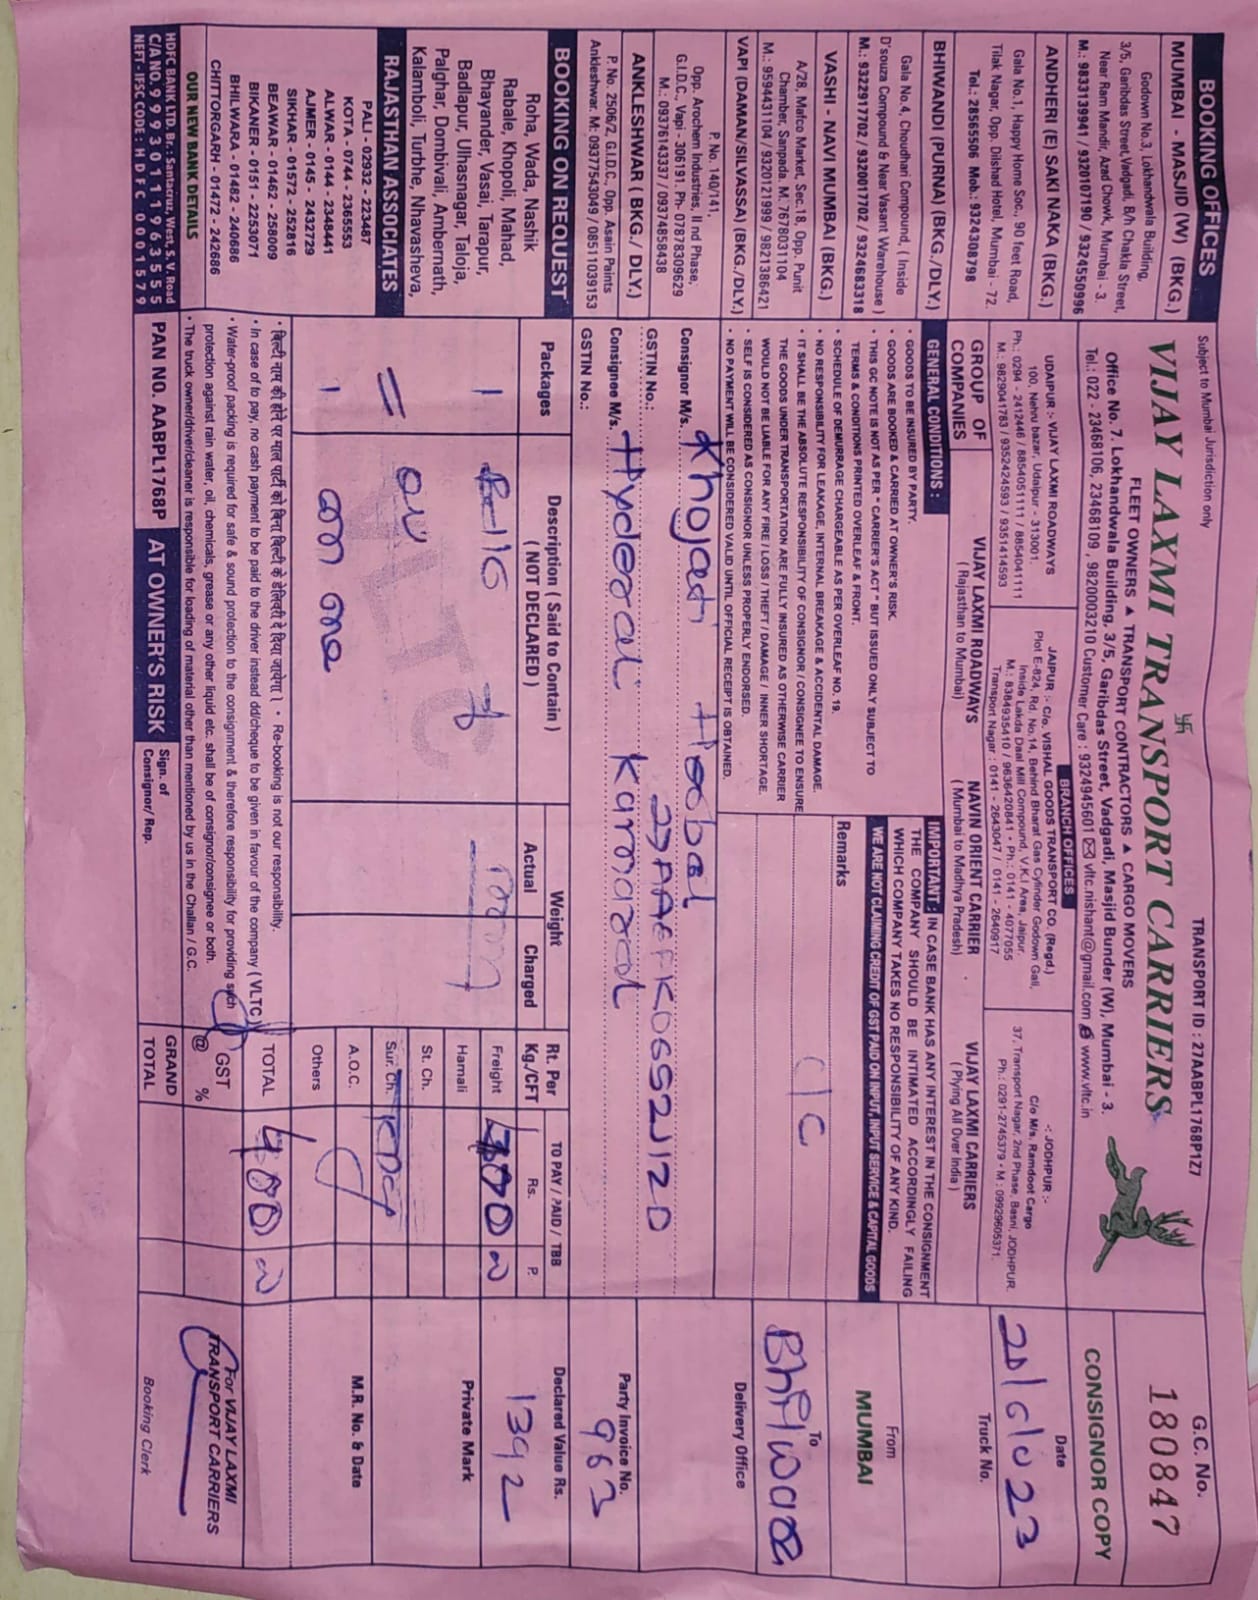 Subject to Mumbai Jurisdiction only
TRANSPORT ID : 27AABPL1768P1Z7
VIJAY LAXMI TRANSPORT CARRIERS
FLEET OWNERS ▲ TRANSPORT CONTRACTORS ▲ CARGO MOVERS
Office No. 7. Lokhandwala Building, 3/5, Garibdas Street, Vadgadi, Masjid Bunder (W), Mumbai - 3.
Tel.: 022 - 23468106, 23468109, 9820003210 Customer Care : 9324945601 vltc.nishant@gmail.com www.vltc.in
G.C. No.
180847
CONSIGNOR COPY
BOOKING OFFICES
MUMBAI - MASJID (W) (BKG.)
Godown No.3, Lokhandwala Building,
3/5, Garibdas Street,Vadgadi, B/h Chakla Street,
Near Ram Mandir, Azad Chowk, Mumbai - 3.
M.: 9833139941 / 9320107190 / 9324550996
ANDHERI (E) SAKI NAKA (BKG.)
Gala No.1, Happy Home Soc., 90 feet Road,
Tilak Nagar, Opp. Dilshad Hotel, Mumbai - 72.
Tel.: 28565506 Mob.: 9324308798
BHIWANDI (PURNA) (BKG./DLY.)
Gala No.4, Choudhari Compound, ( Inside
D'souza Compound & Near Vasant Warehouse )
M.: 9322917702 / 9320017702 / 9324683318
VASHI - NAVI MUMBAI (BKG.)
A/28, Mafco Market, Sec.18, Opp. Punit
Chamber, Sanpada. M. 7678031104
M.: 9594431104 / 9320121999 / 9821386421
VAPI (DAMAN/SILVASSA) (BKG./DLY.)
P. No. 140/141,
Opp. Arochem Industries, II nd Phase,
G.I.D.C., Vapi - 306191. Ph- 07878309629
M.: 09376143337 / 09374858438
ANKLESHWAR ( BKG./ DLY.)
P. No. 2506/2, G.I.D.C., Opp. Asain Paints
Ankleshwar. M: 09377543049 / 08511039153
BOOKING ON REQUEST
Roha, Wada, Nashik
Rabale, Khopoli, Mahad,
Bhayander, Vasai, Tarapur,
Badlapur, Ulhasnagar, Taloja,
Palghar, Dombivali, Ambernath,
Kalamboli, Turbhe, Nhavasheva,
RAJASTHAN ASSOCIATES
PALI - 02932 - 223487
KOTA - 0744 - 2365553
ALWAR - 0144 - 2348441
AJMER - 0145 - 2432729
SIKHAR - 01572 - 252816
BEAWAR - 01462 - 258009
BIKANER - 0151 - 2253071
BHILWARA - 01482 - 240686
CHITTORGARH - 01472 - 242686
OUR NEW BANK DETAILS
HDFC BANK LTD. Br.: Santacruz West, S. V. Road
C/A NO. 99930111963555
NEFT - IFSC CODE : HDFC 0001579
BRANCH OFFICES
UDAIPUR :- VIJAY LAXMI ROADWAYS
100, Nehru bazar, Udaipur - 313001.
Ph.: 0294 - 2412446 / 8854051111 / 8854041111
M.: 9829041783 / 9352424593 / 9351414593
JAIPUR :- C/o. VISHAL GOODS TRANSPORT CO. (Regd.)
Plot E-824, Rd. No.14, Behind Bharat Gas Cylinder Godown Gali,
Inside Lakda Daal Mill Compound, V.K.I Area, Jaipur.
M.: 8384935410 / 9636420841 • Ph.: 0141 - 4077055
Transport Nagar : 0141 - 2643047 / 0141 - 2640917
-: JODHPUR :-
C/o M/s. Ramdoot Cargo
37, Transport Nagar, 2nd Phase, Basni, JODHPUR.
Ph.: 0291-2745379 • M : 09929605371.
GROUP OF COMPANIES
VIJAY LAXMI ROADWAYS
( Rajasthan to Mumbai)
NAVIN ORIENT CARRIER
( Mumbai to Madhya Pradesh)
VIJAY LAXMI CARRIERS
( Plying All Over India )
Date
20/6/023
Truck No.
From
MUMBAI
To
Bhilwara
Delivery Office
GENERAL CONDITIONS :
• GOODS TO BE INSURED BY PARTY.
• GOODS ARE BOOKED & CARRIED AT OWNER'S RISK.
• THIS GC NOTE IS NOT AS PER " CARRIER'S ACT " BUT ISSUED ONLY SUBJECT TO
TERMS & CONDITIONS PRINTED OVERLEAF & FRONT.
• SCHEDULE OF DEMURRAGE CHARGEABLE AS PER OVERLEAF NO. 19.
• NO RESPONSIBILITY FOR LEAKAGE, INTERNAL BREAKAGE & ACCIDENTAL DAMAGE.
• IT SHALL BE THE ABSOLUTE RESPONSIBILITY OF CONSIGNOR / CONSIGNEE TO ENSURE
THE GOODS UNDER TRANSPORTATION ARE FULLY INSURED AS OTHERWISE CARRIER
WOULD NOT BE LIABLE FOR ANY FIRE / LOSS / THEFT / DAMAGE / INNER SHORTAGE.
• SELF IS CONSIDERED AS CONSIGNOR UNLESS PROPERLY ENDORSED.
• NO PAYMENT WILL BE CONSIDERED VALID UNTIL OFFICIAL RECEIPT IS OBTAINED.
IMPORTANT : IN CASE BANK HAS ANY INTEREST IN THE CONSIGNMENT
THE COMPANY SHOULD BE INTIMATED ACCORDINGLY FAILING
WHICH COMPANY TAKES NO RESPONSIBILITY OF ANY KIND.
WE ARE NOT CLAIMING CREDIT OF GST PAID ON INPUT, INPUT SERVICE & CAPITAL GOODS
Remarks
C/C
Consignor M/s. Khojati
GSTIN No.: 27AAAFK0652J1ZD
Consignee M/s.
GSTIN No.:
Party Invoice No.
963
Packages
Description ( Said to Contain )
( NOT DECLARED )
Weight
Actual
Charged
Rt. Per
Kg./CFT
TO PAY / PAID / TBB
Rs.
P.
Declared Value Rs.
1392
Private Mark
M.R. No. & Date
1
VLTC
Freight
Hamali
St. Ch.
Sur. Ch.
A.O.C.
Others
TOTAL 400
GST @ %
GRAND TOTAL
• बिल्टी नाम की होने पर माल पार्टी को बिना बिल्टी के डेलिवरी दे दिया जायेगा । • Re-booking is not our responsibility.
• In case of to pay, no cash payment to be paid to the driver instead dd/cheque to be given in favour of the company ( VLTC )
• Water-proof packing is required for safe & sound protection to the consignment & therefore responsibility for providing such
protection against rain water, oil, chemicals, grease or any other liquid etc. shall be of consignor/consignee or both.
• The truck owner/driver/cleaner is responsible for loading of material other than mentioned by us in the Challan / G.C.
PAN NO. AABPL1768P
AT OWNER'S RISK
Sign. of
Consignor/ Rep.
For VIJAY LAXMI
TRANSPORT CARRIERS
Booking Clerk